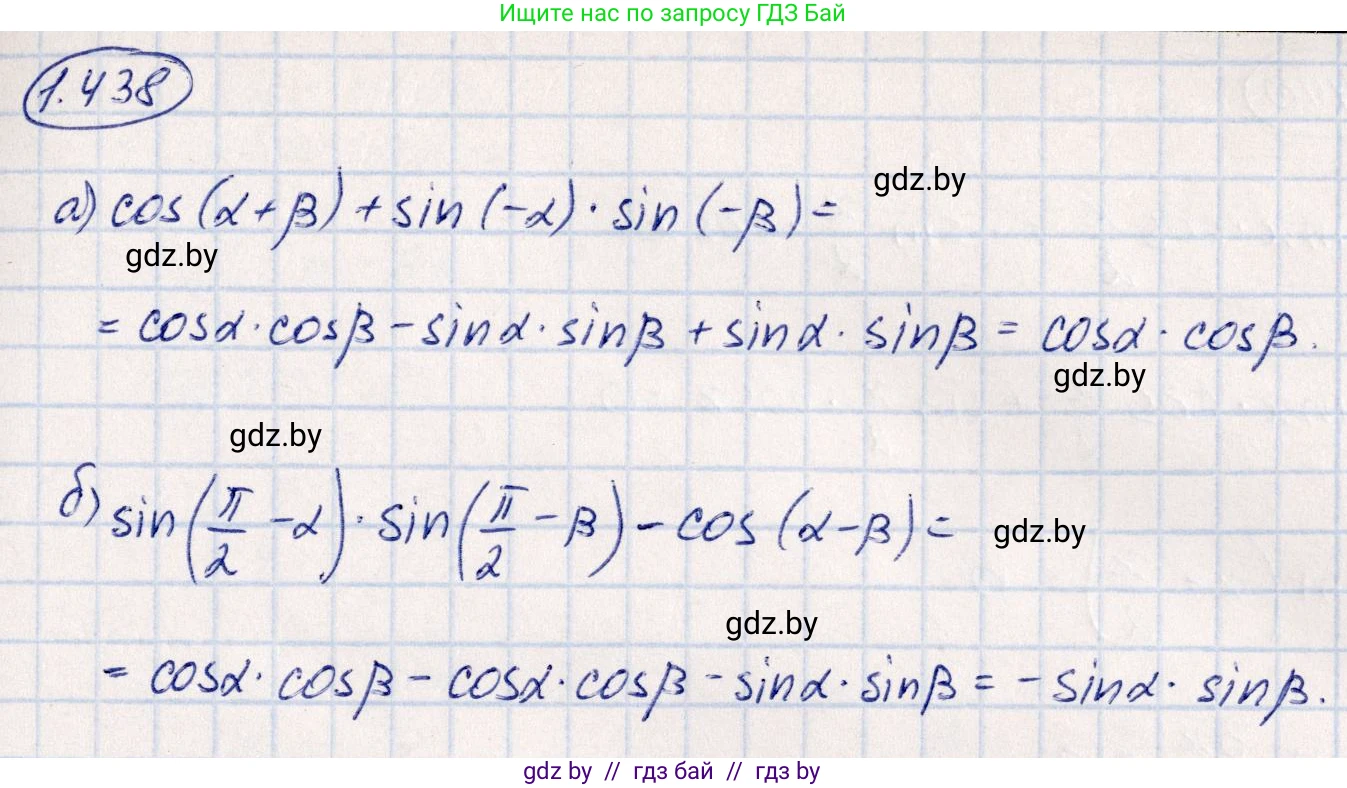 Ищите нас по запросу ГДЗ Бай
1.438
а) cos(α+β)+sin(-α)·sin(-β)=
gdz.by
gdz.by
= cosα·cosβ-sinα·sinβ+sinα·sinβ= cosα·cosβ.
gdz.by
gdz.by
б) sin(π/2-α)·sin(π/2-β)-cos(α-β)=
gdz.by
gdz.by
= cosα·cosβ-cosα·cosβ-sinα·sinβ=-sinα·sinβ.
gdz by // гдз бай // гдз by